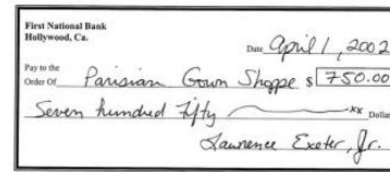 First National Bank
Hollywood, Ca.
Date April 1, 2002
Pay to the
Order Of Parisian Gown Shoppe $ 750.00
Seven hundred Fifty xx Dollar
Lawrence Exeter, Jr.